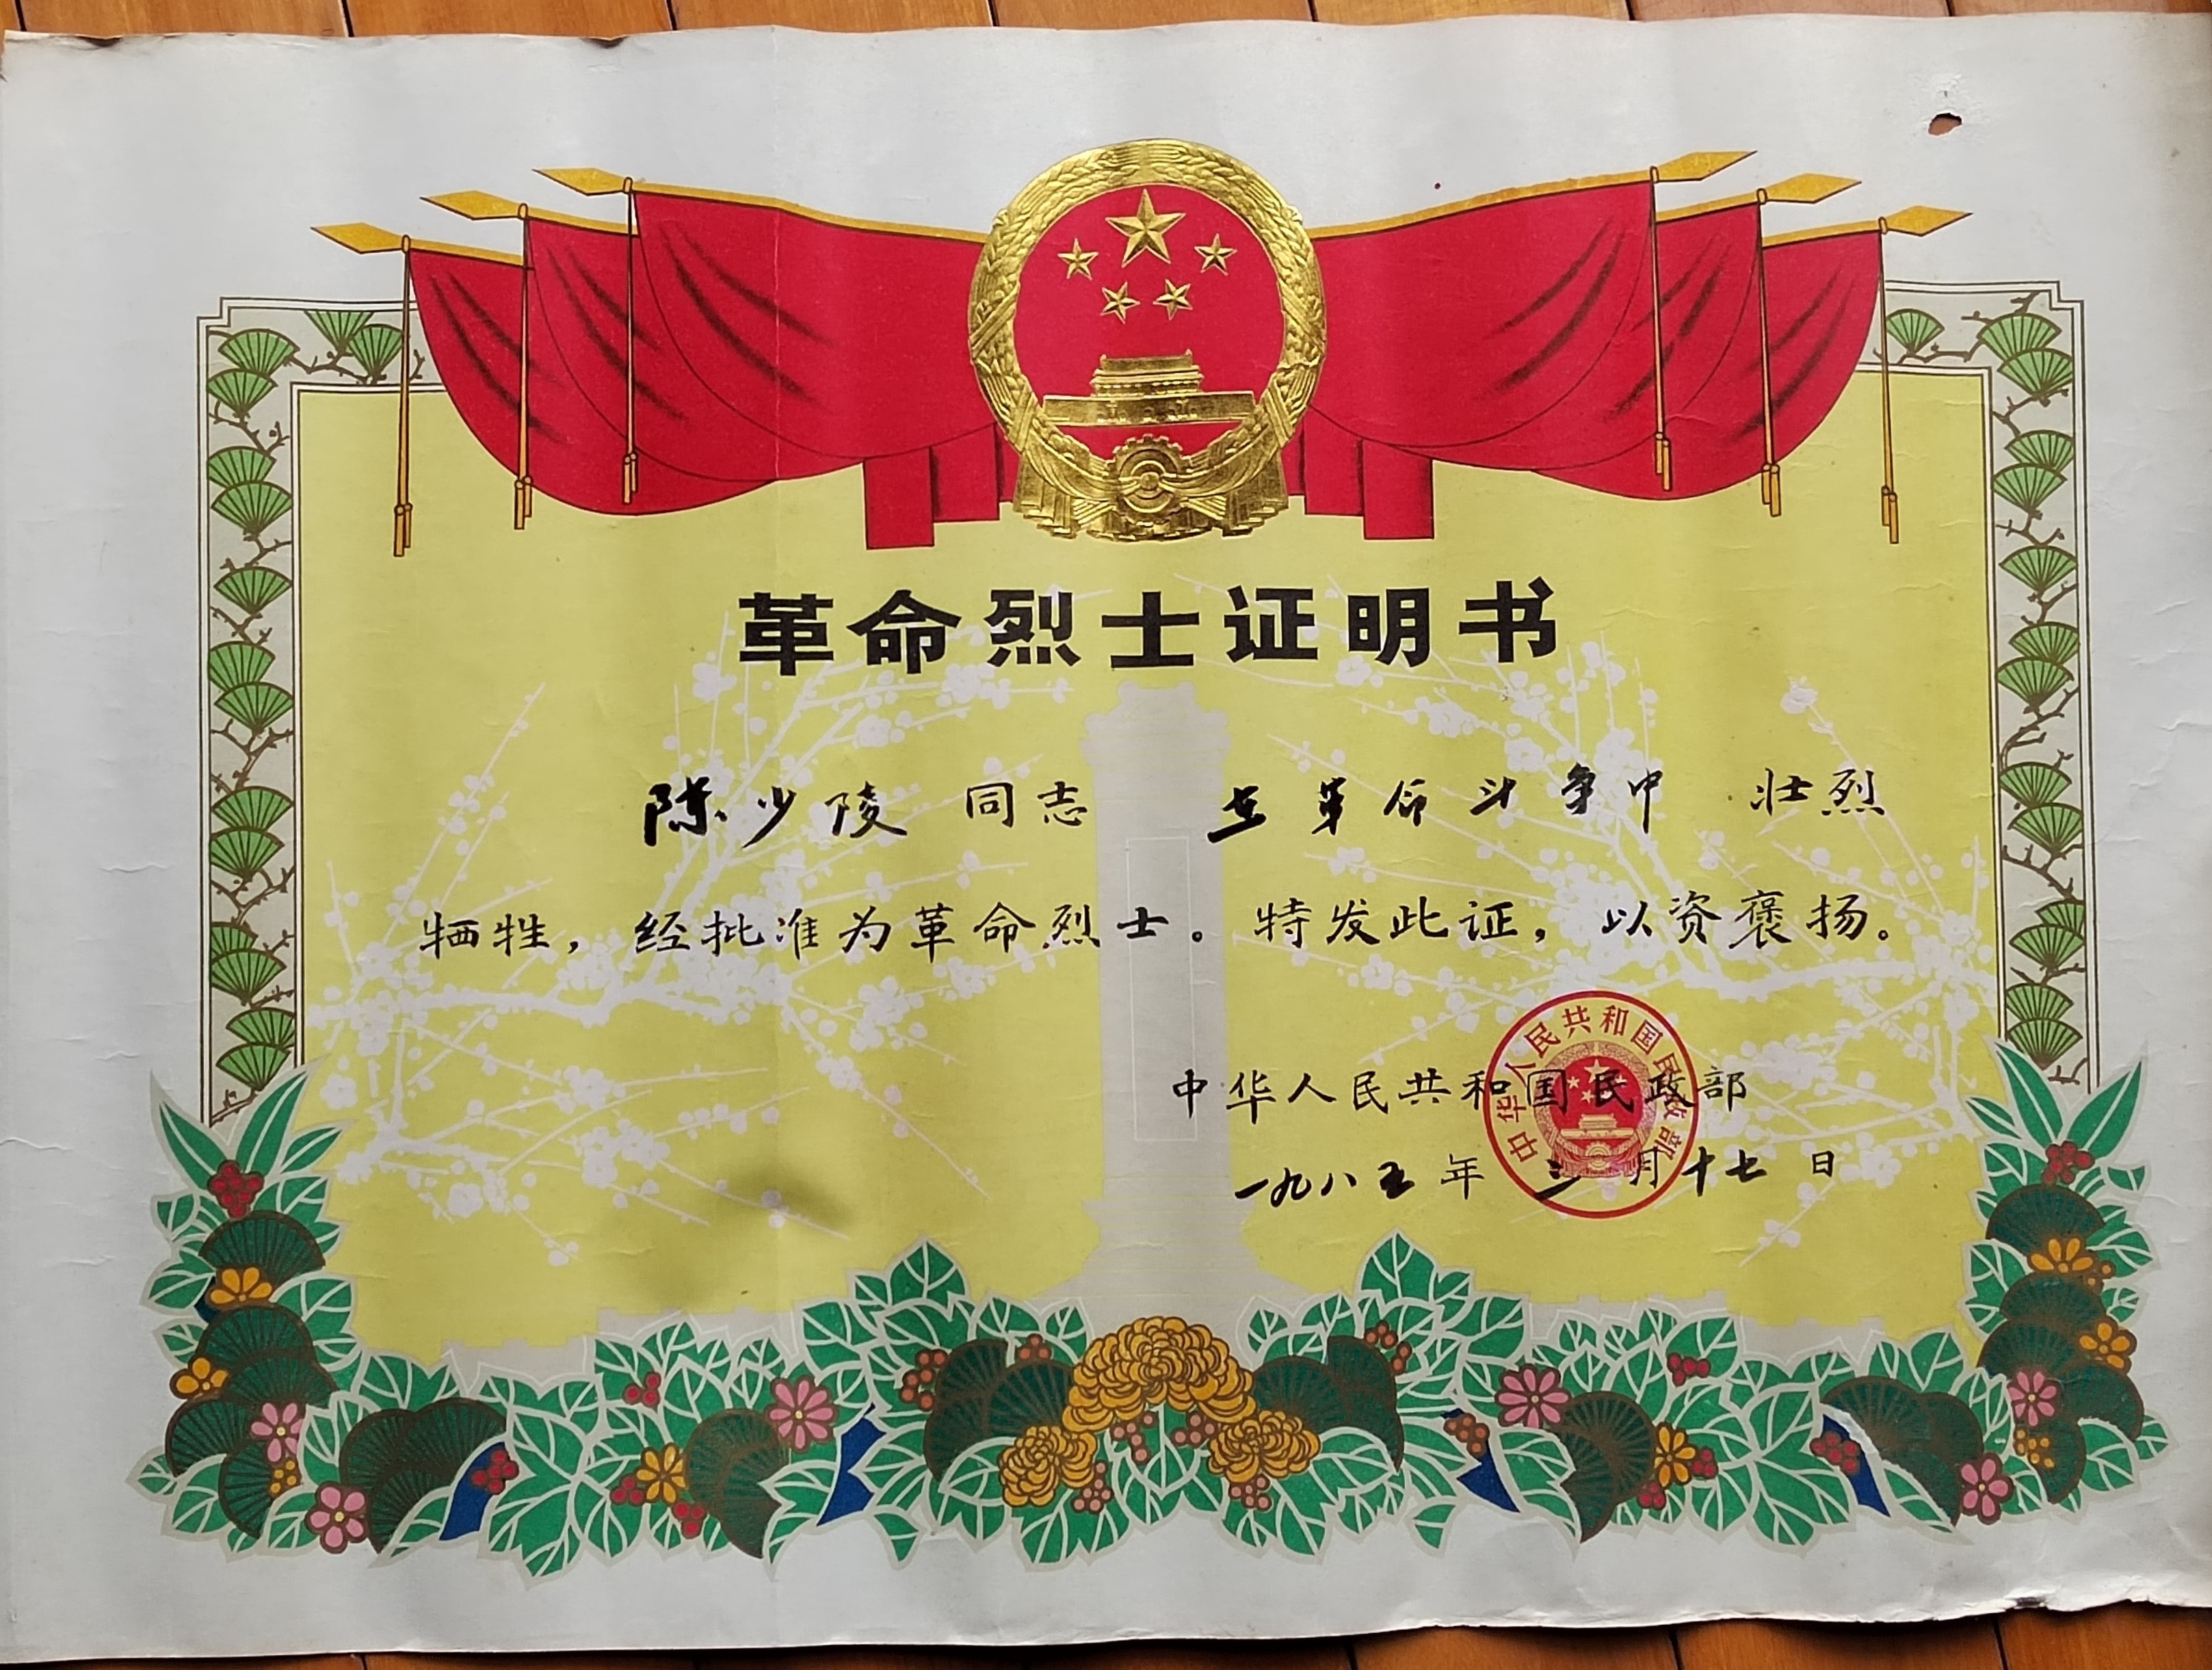 革命烈士证明书
陈少陵 同志 在革命斗争中 壮烈
牺牲，经批准为革命烈士。特发此证，以资褒扬。
中华人民共和国民政部
中华人民共和国民政部
一九八五年三月十七日